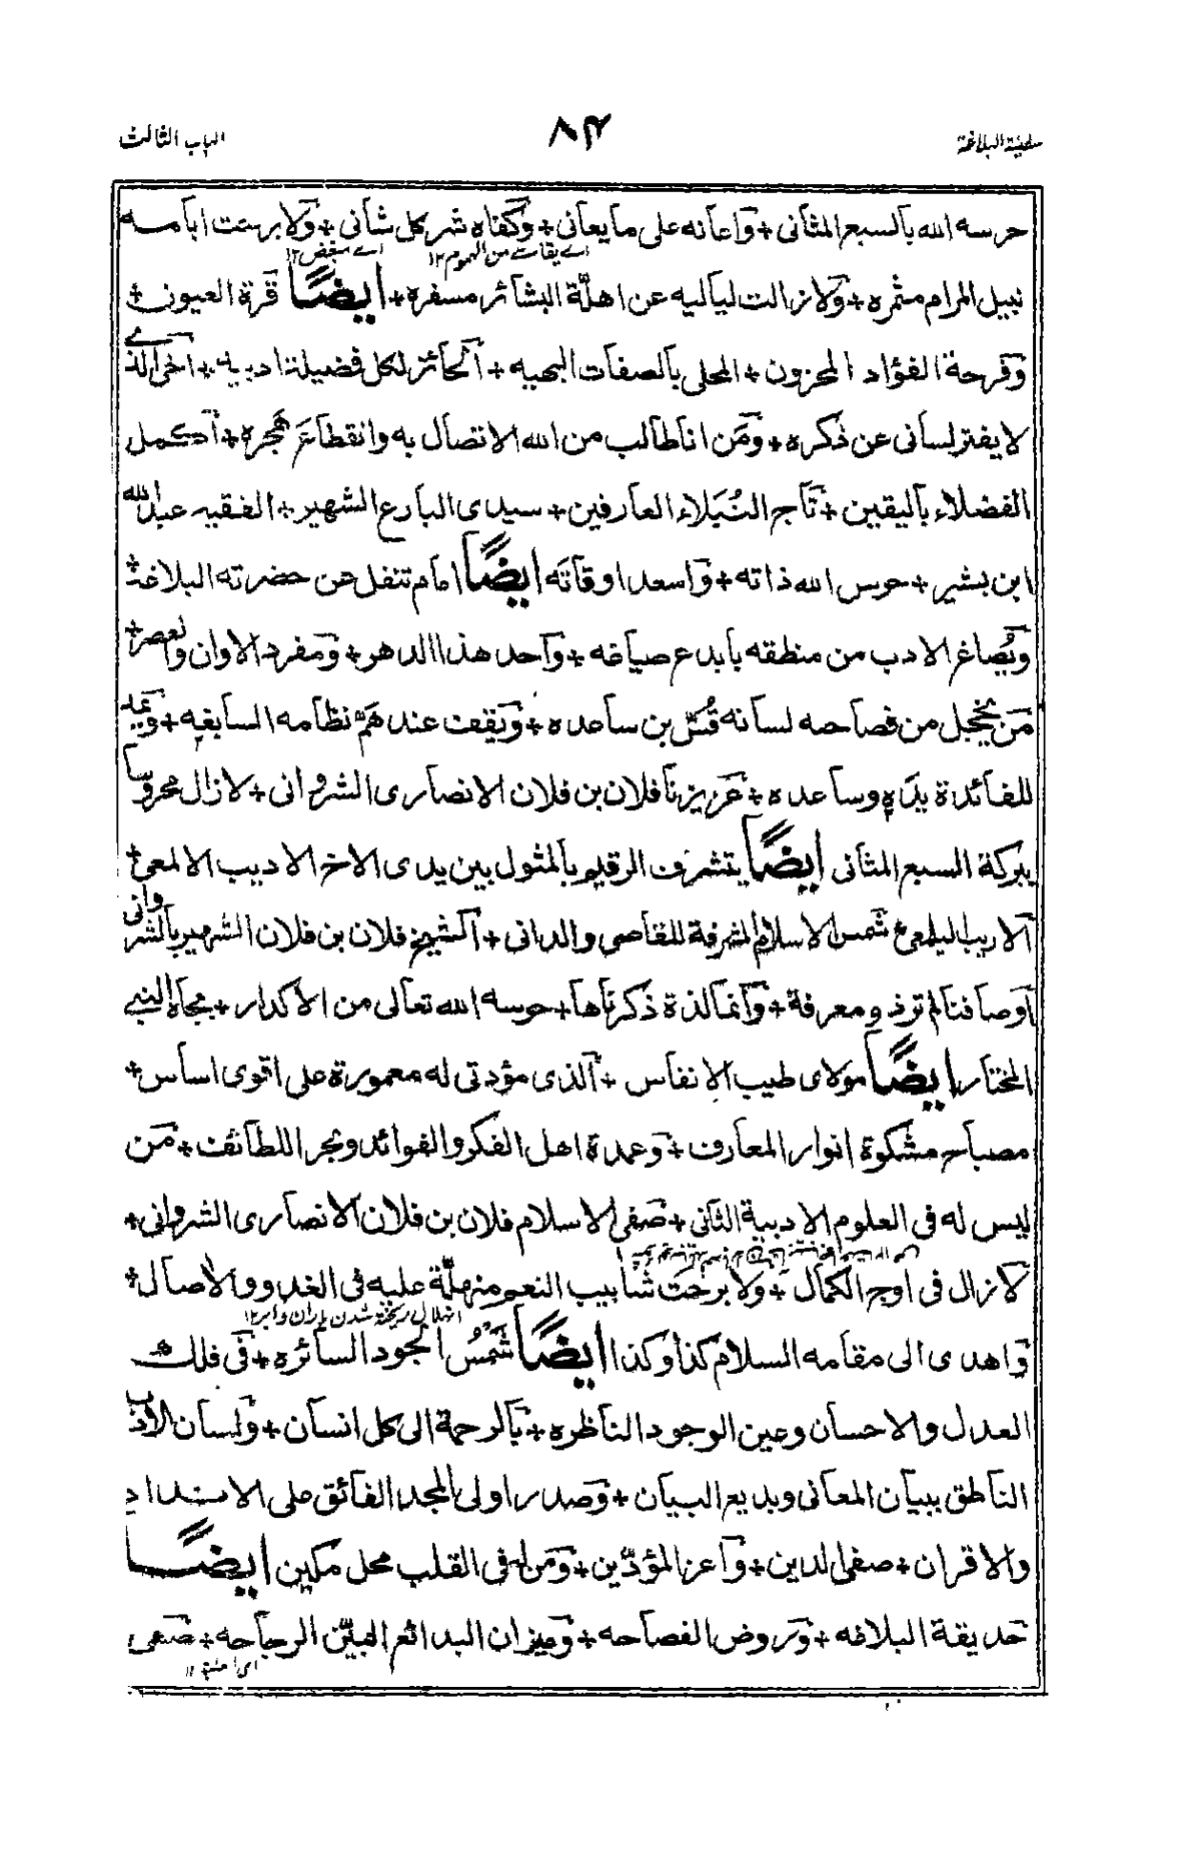 الباب الثالث ٨٢ سفينة البلاغة
حرسه الله بالسبع المثانى + وَاعانه على ما يعانى + وَكفاه شر كل شانى + وَلا برحت ايامه
اے يقاسے من الهموم ١٢ اے مبغض ١٢
نبيل المرام مثمره + وَلا زالت لياليه عن اهلّة البشائر مسفره + ايضًا قرة العيون +
وَفرحة الفؤاد المحزون + المحلى بالصفات البهيه + اَلحائز لكل فضيلة ادبيه + اخى الذے
لا يفتر لسانى عن ذكره + وَمَن انا طالب من الله الاتصال به وانقطاع هجره + اَكمل
الفضلاء باليقين + تَاج النُبَلاء العارفين + سيدى البارع الشهير + الفقيه عبد الله
ابن بشير + حرس الله ذاته + وَاسعد اوقاته ايضًا امام تنفل عن حضرته البلاغة +
ويُصاغ الادب من منطقه بابدع صياغه + وَاحد هذا الدهر + وَمفرد الاوان والعصر +
مَن يخجل من فصاحه لسانه قُسّ بن ساعده + وَيقف عند همّ نظامه السابغه + وَيمد
للفائدة يدَه وساعده + عَزيزنا فلان بن فلان الانصارى الشروانى + لازال محروسا
ببركة السبع المثانى ايضًا يتشرف الرقيم بالمثول بين يدى الاخ الاديب الالمعى +
اَلاريب اليلمعى + شمس الاسلام المشرفة للقاصى والدانى + اَلشيخ فلان بن فلان الشهير بالشروانى
اَوصافنا لم تزد ومعرفة + وَانما لذة ذكرناها + حرسه الله تعالى من الاكدار + بجاه النبے
المختار ايضًا مولاى طيب الانفاس + اَلذى مؤدتى له معمورة على اقوى اساس +
مصباح مشكوة انوار المعارف + وَعمدة اهل الفكر والفوائد وبحر اللطائف + مَن
ليس له فى العلوم الادبية الثانى + صَفى الاسلام فلان بن فلان الانصارى الشروانى +
لَا زال فى اوج الكمال + وَلا برحَت شابيب النعم منهلّة عليه فى الغدو والاصال +
انهلال ريخته شدن باران وابر ١٢
وَاهدى الى مقامه السلام كذا وكذا ايضًا شَمسُ الجود السائره + فَى فلك
العدل والاحسان وعين الوجود الناظره + بَالرحمة الى كل انسان + وَلسان الادب
الناطق ببيان المعانى وبديع البيان + وَصدر اولى المجد الفائق على الانداد
والاقران + صفى الدين + وَاعز المؤدّين + وَمَن له فى القلب محل مكين ايضًا
حَديقة البلاغه + وَروض الفصاحه + وَميزان البدائع المبيّن الرجاحه + صَفى